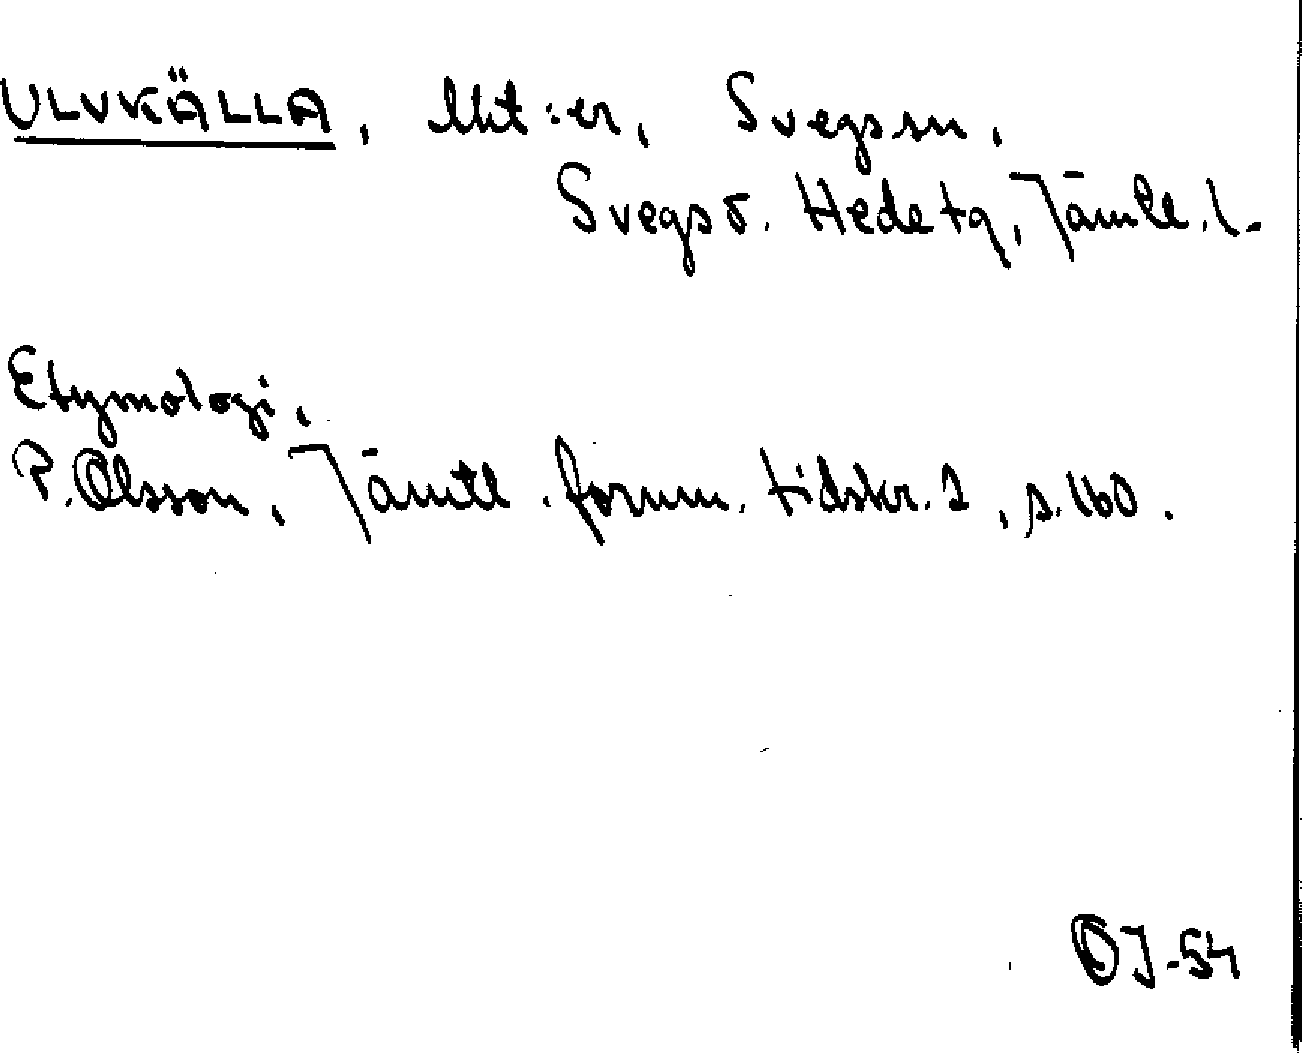 ULVKÄLLA, lht:er, Svegs sn,
Svegs o. Hede tg, Jämtl. l.
Etymologi.
P. Olsson, Jämtl. fornm. tidskr. 1, s. 160.
OJ-54